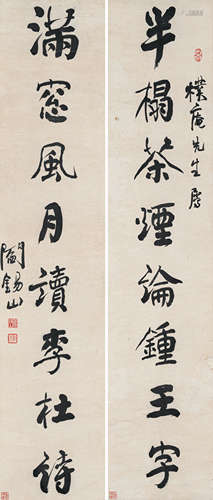 半榻茶煙論鍾王字
樸庵先生屬
滿窗風月讀李杜詩
閻錫山